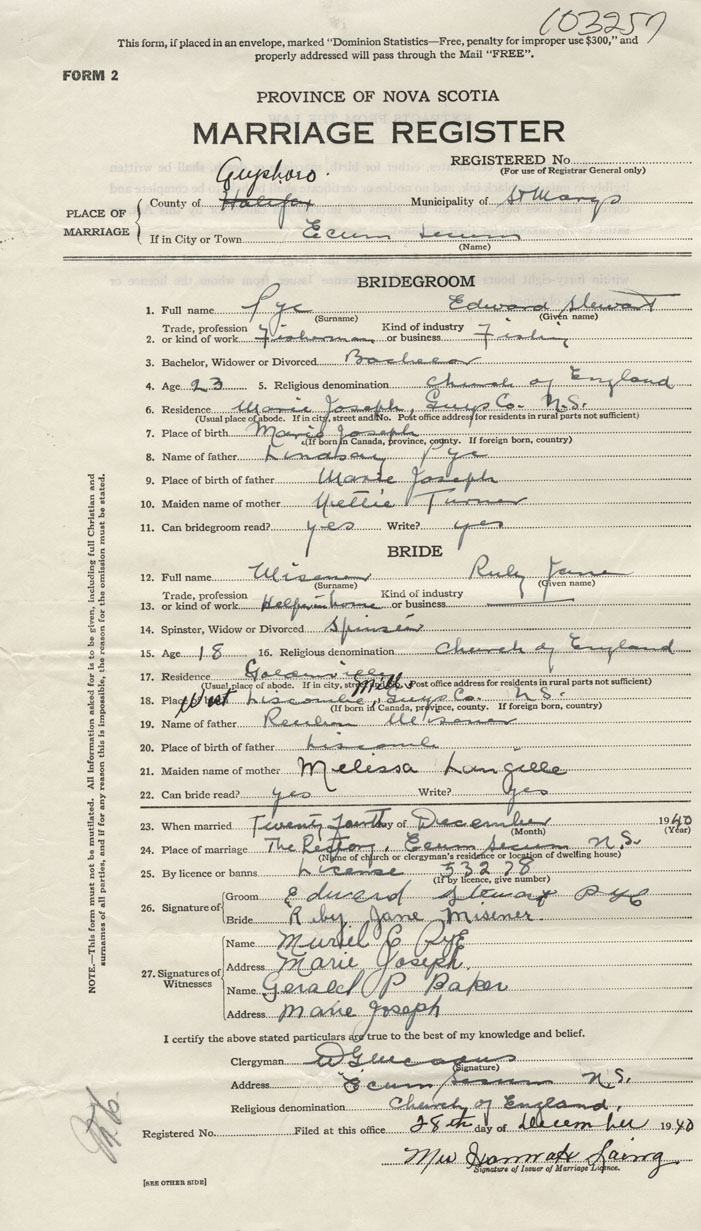 103257
This form, if placed in an envelope, marked "Dominion Statistics—Free, penalty for improper use $300," and
properly addressed will pass through the Mail "FREE".
FORM 2
PROVINCE OF NOVA SCOTIA
MARRIAGE REGISTER
REGISTERED No.
(For use of Registrar General only)
Guysboro.
PLACE OF MARRIAGE
County of Halifax Municipality of St Marys
If in City or Town Ecum Secum
(Name)
BRIDEGROOM
1. Full name Pye Edward Stewart
(Surname) (Given name)
Trade, profession Kind of industry
2. or kind of work Fisherman or business Fishing
3. Bachelor, Widower or Divorced Bachelor
4. Age 23 5. Religious denomination Church of England
6. Residence Marie Joseph, Guys Co. N.S.
(Usual place of abode. If in city, street and No. Post office address for residents in rural parts not sufficient)
7. Place of birth Marie Joseph
(If born in Canada, province, county. If foreign born, country)
8. Name of father Lindsay Pye
9. Place of birth of father Marie Joseph
10. Maiden name of mother Nettie Turner
11. Can bridegroom read? yes Write? yes
BRIDE
12. Full name Misener Ruby Jane
(Surname) (Given name)
Trade, profession Kind of industry
13. or kind of work Helps in home or business
14. Spinster, Widow or Divorced Spinster
15. Age 18 16. Religious denomination Church of England
17. Residence Goldenville
(Usual place of abode. If in city, street and No. Post office address for residents in rural parts not sufficient)
Mills
18. Place of birth West Liscombe, Guys Co. N.S.
(If born in Canada, province, county. If foreign born, country)
19. Name of father Reuben Misener
20. Place of birth of father Liscomb
21. Maiden name of mother Melessa Langille
22. Can bride read? yes Write? yes
23. When married Twenty Fourth day of December 1940
(Month) (Year)
24. Place of marriage The Rectory, Ecum Secum N.S.
(Name of church or clergyman's residence or location of dwelling house)
25. By licence or banns License 53278
(If by licence, give number)
26. Signature of
Groom Edward Stewart Pye
Bride Ruby Jane Misener.
27. Signatures of Witnesses
Name Muriel C Pye
Address Marie Joseph.
Name Gerald P Baker
Address Marie Joseph
I certify the above stated particulars are true to the best of my knowledge and belief.
Clergyman
(Signature)
Address Ecum Secum N.S.
Religious denomination Church of England.
Registered No. Filed at this office 28th day of December 1940
Mrs Hannah Laing
Signature of Issuer of Marriage Licence.
[SEE OTHER SIDE]
NOTE.—This form must not be mutilated. All information asked for is to be given, including full Christian and
surnames of all parties, and if for any reason this is impossible, the reason for the omission must be stated.